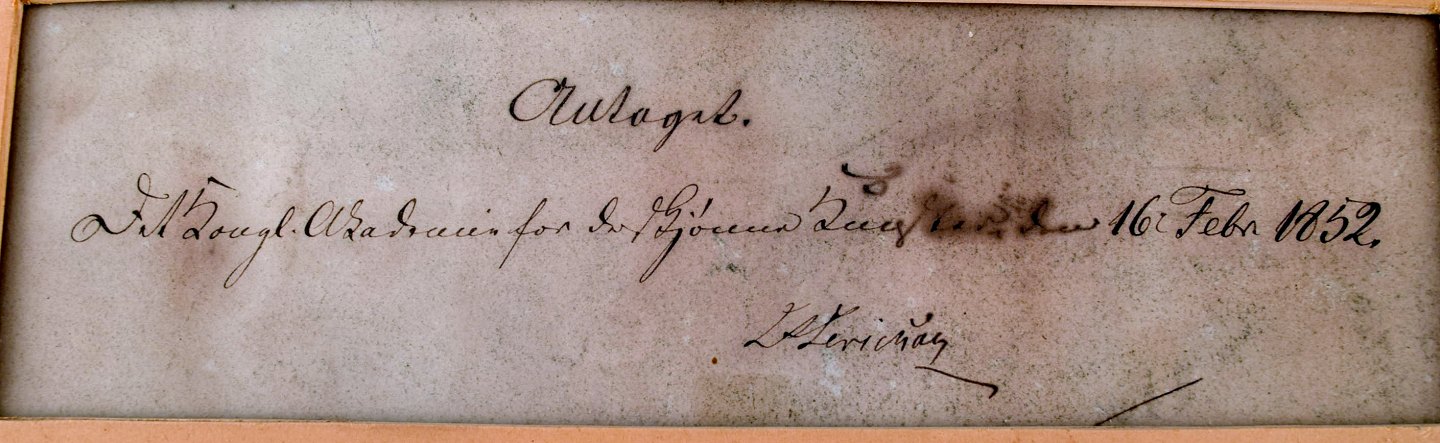 Antaget.
Det Kongl. Akademie for de skjønne Kunster, den 16 Febr 1852.
Jerichau